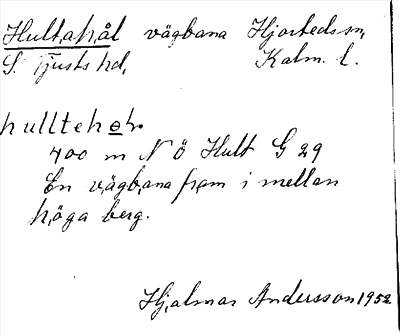 Hultahål vägbana Hjorteds sn,
S. Tjusts hd, Kalm. l.
hullteho̲l.
400 m N Ö Hult G 29
En vägbana fram i mellan
höga berg.
Hjalmar Andersson 1952